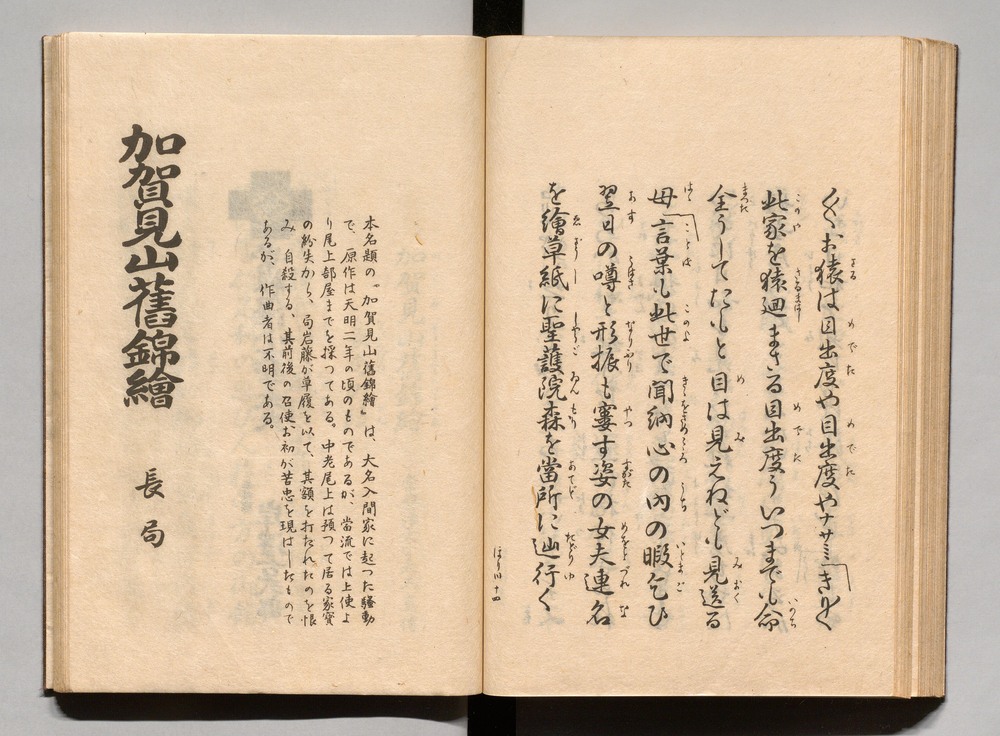 〱お猿は目出度や目出度やナサミきり〱
此家を猿廻まさる目出度ういつまでも命
全うしてたもと目は見えねども見送る
母言葉も此世で聞納心の内の暇乞ひ
翌日の噂と形振も窶す姿の女夫連名
を繪草紙に聖護院森を當所に辿行く
ほり川十四
本名題の「加賀見山舊錦繪」は、大名入間家に起つた騷動
で、原作は天明二年の頃のものであるが、當流では上使よ
り尾上部屋までを採つてある。中老尾上は預つて居る家寳
の紛失から、局岩藤が草履を以て、其額を打たれたのを恨
み、自殺する、其前後の召使お初が苦忠を現はしたもので
あるが、作曲者は不明である。
加賀見山舊錦繪
長局